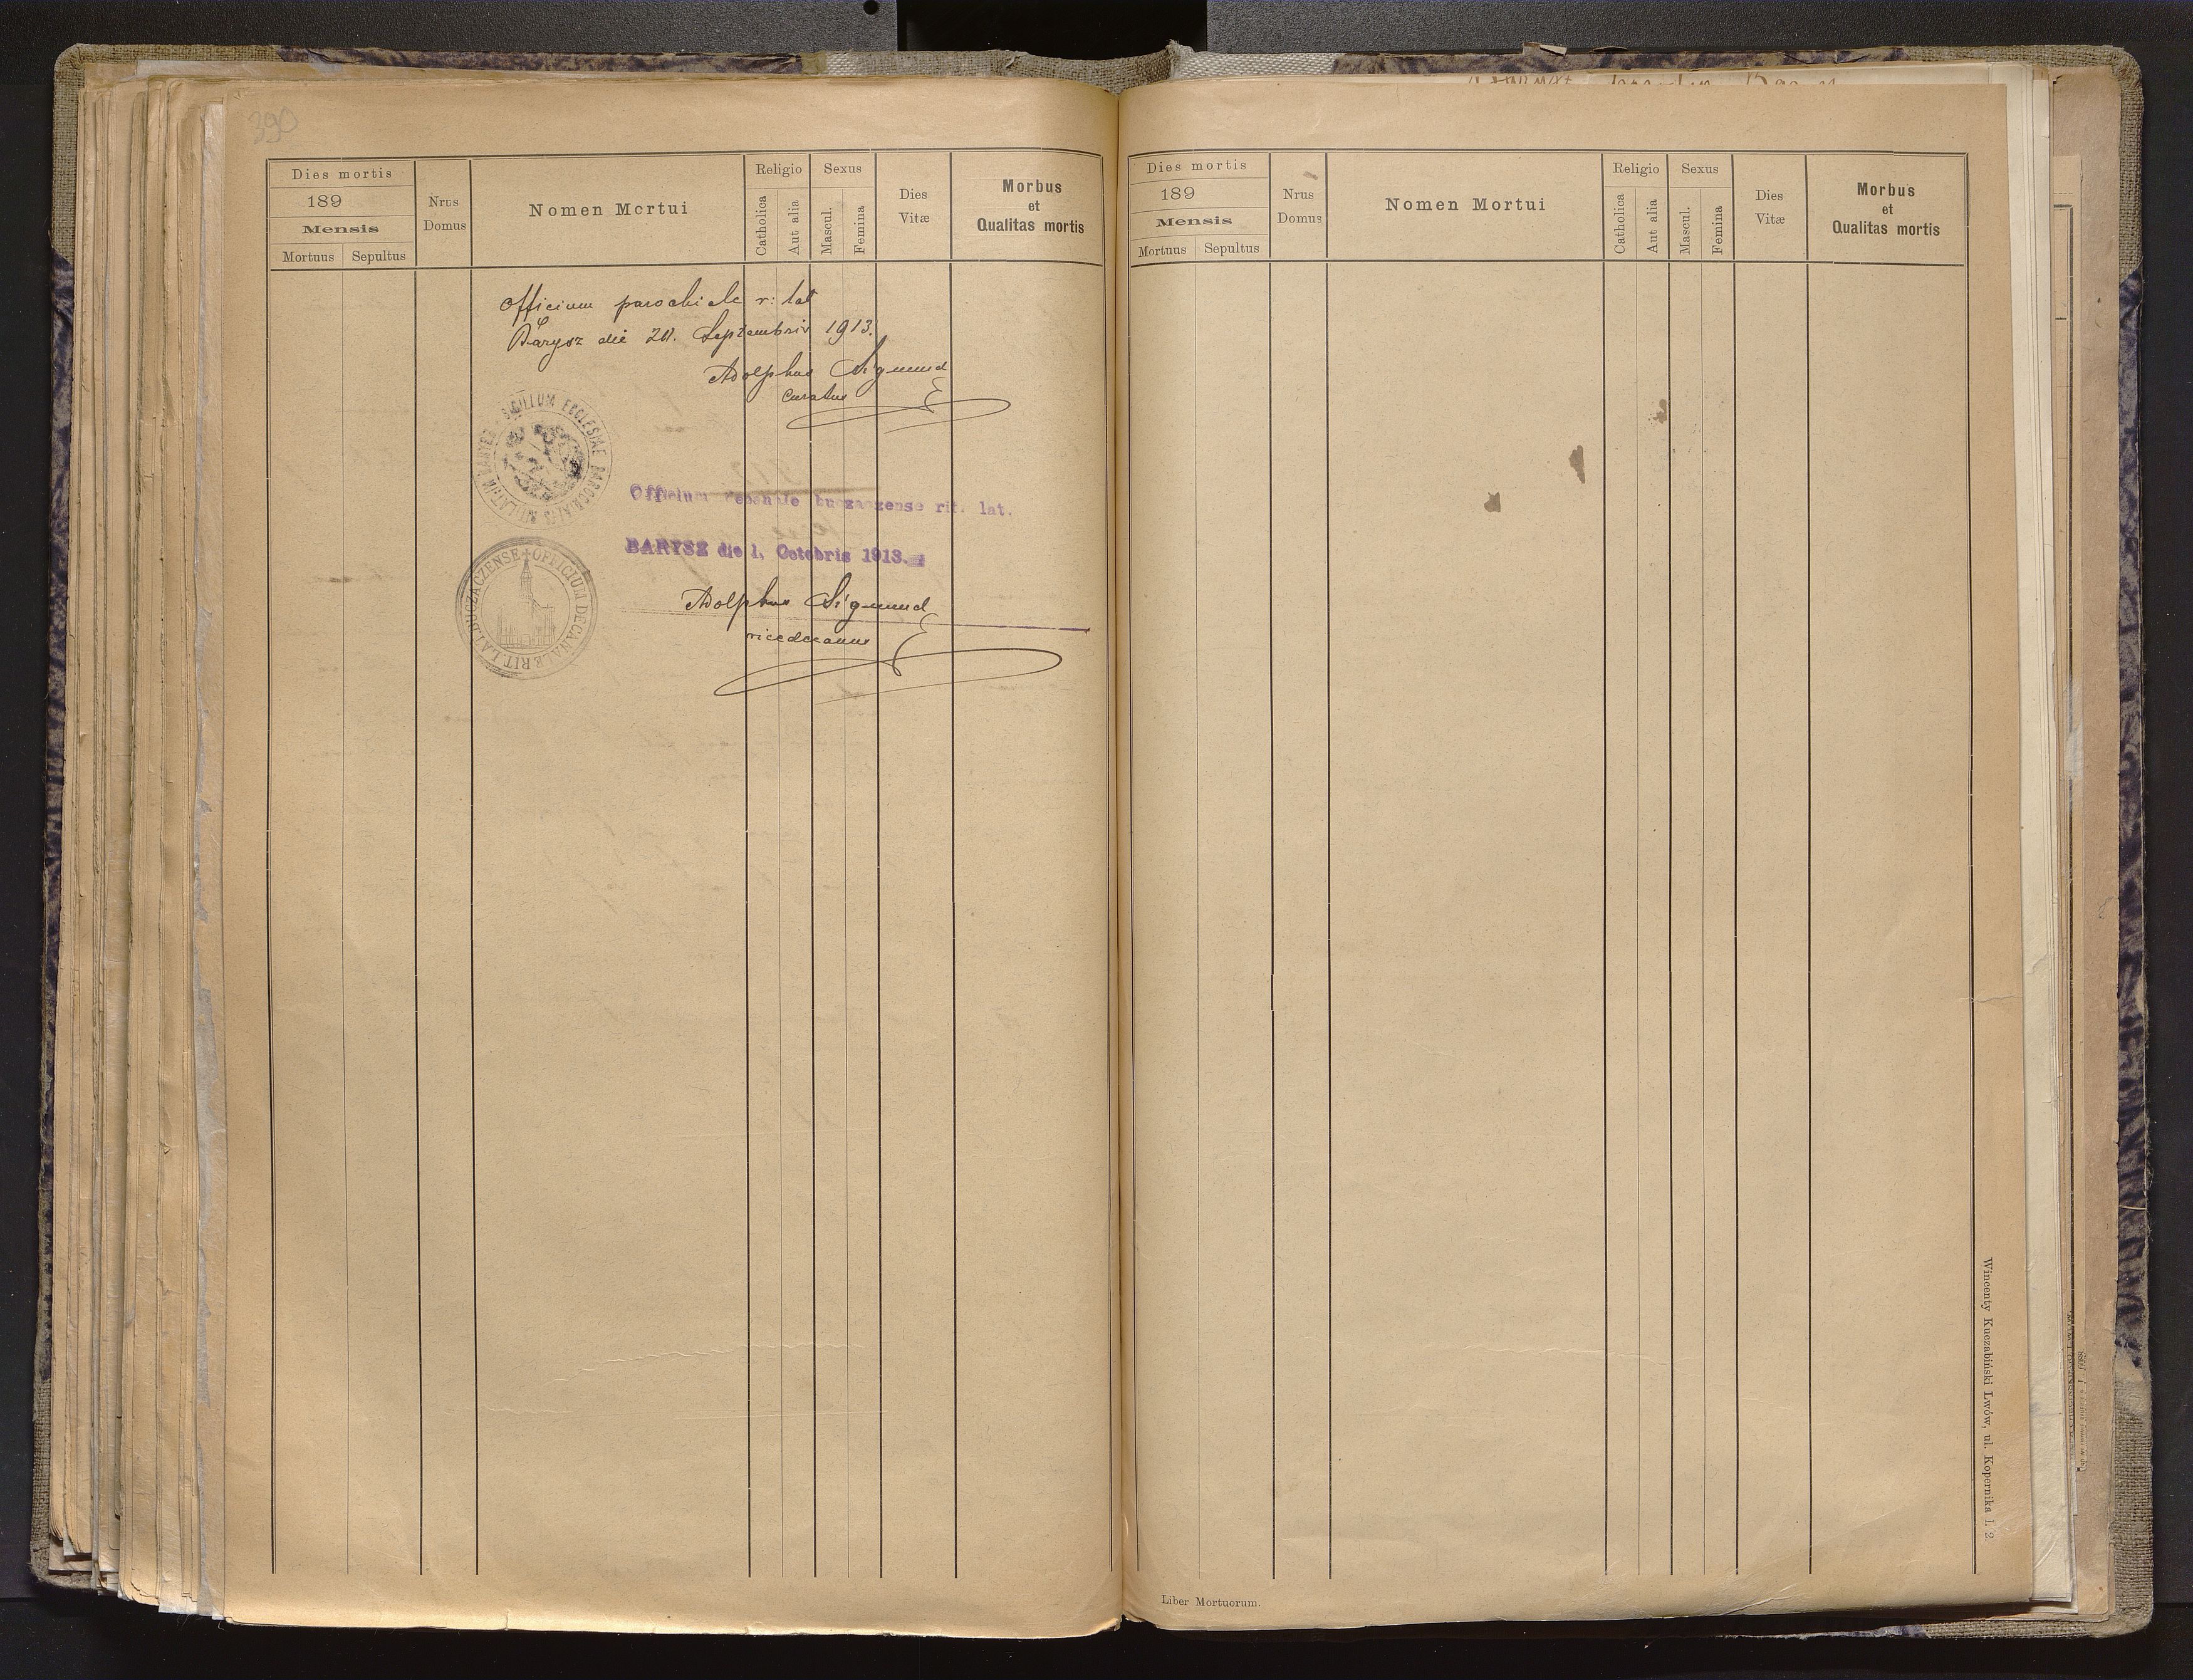 390
Dies mortis
189
Mensis
Mortuus Sepultus
Nrus Domus
Nomen Mortui
Religio
Catholica
Aut alia
Sexus
Mascul.
Femina
Dies Vitæ
Morbus
et
Qualitas mortis
Officium parochiale r: lat
Barysz die Septembris 1913.
Adolphus Sigmund
curatus
SIGILLUM ECCLESIAE PAROCHIALIS
Officium buczaczense rit. lat.
BARYSZ die 1. Octobris 1913.
OFFICIUM DECANALE RIT. LAT. BUCZACZENSE
Adolphus Sigmund
vicedecanus
Dies mortis
189
Mensis
Mortuus Sepultus
Nrus Domus
Nomen Mortui
Religio
Catholica
Aut alia
Sexus
Mascul.
Femina
Dies Vitæ
Morbus
et
Qualitas mortis
Wincenty Kuczabiński Lwów, ul. Kopernika l. 2
Liber Mortuorum.